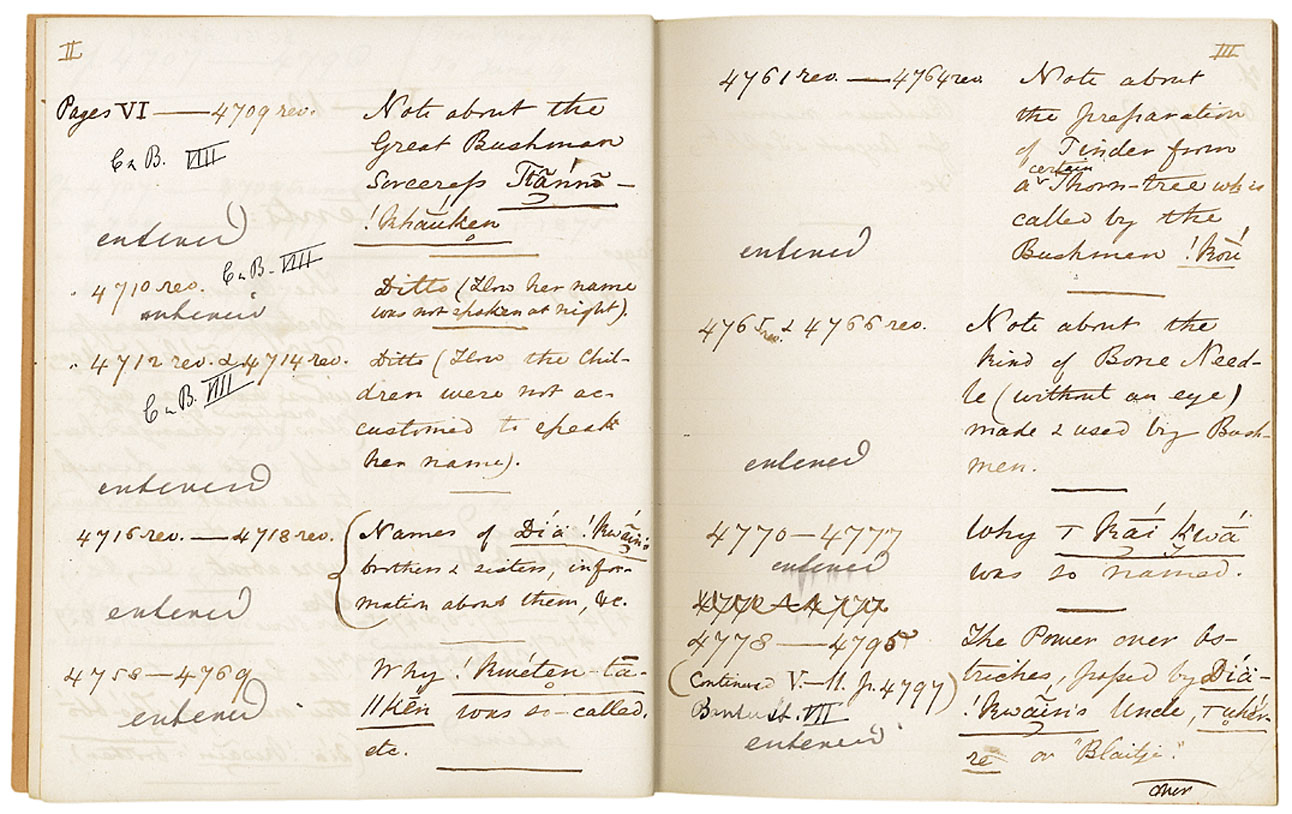 II
Pages VI — 4709 rev.
Note about the
Great Bushman
Sorceress Ttā́nnō-
!kháuken
C & B. VIII
entered
4710 rev.
C & B - VIII
Ditto (How her name
was not spoken at night).
entered
4712 rev. & 4714 rev.
Ditto (How the Chil-
dren were not ac-
customed to speak
her name).
C & B. VIII
entered
4716 rev. — 4718 rev.
Names of Díä! kwãin's
brothers & sisters, infor-
mation about them, &c.
entered
4758 — 4769
Why !kwéten-ta-
//kēn was so-called.
etc.
entered
III
4761 rev. — 4764 rev.
Note about
the preparation
of Tinder from
a certain Thorn-tree wh is
called by the
Bushman !kou
entered
4765 rev. & 4766 rev.
Note about the
kind of Bone Need-
le (without an eye)
made & used by Bush-
men.
entered
4770 — 4777
Why T kái kwā́
was so named.
entered
4778 — 4795
The Power over Os-
triches, possed by Díä-
!kwãin's Uncle,
(Continued V.—11. p. 4797)
VII
entered
rē or "Blaitje."
over